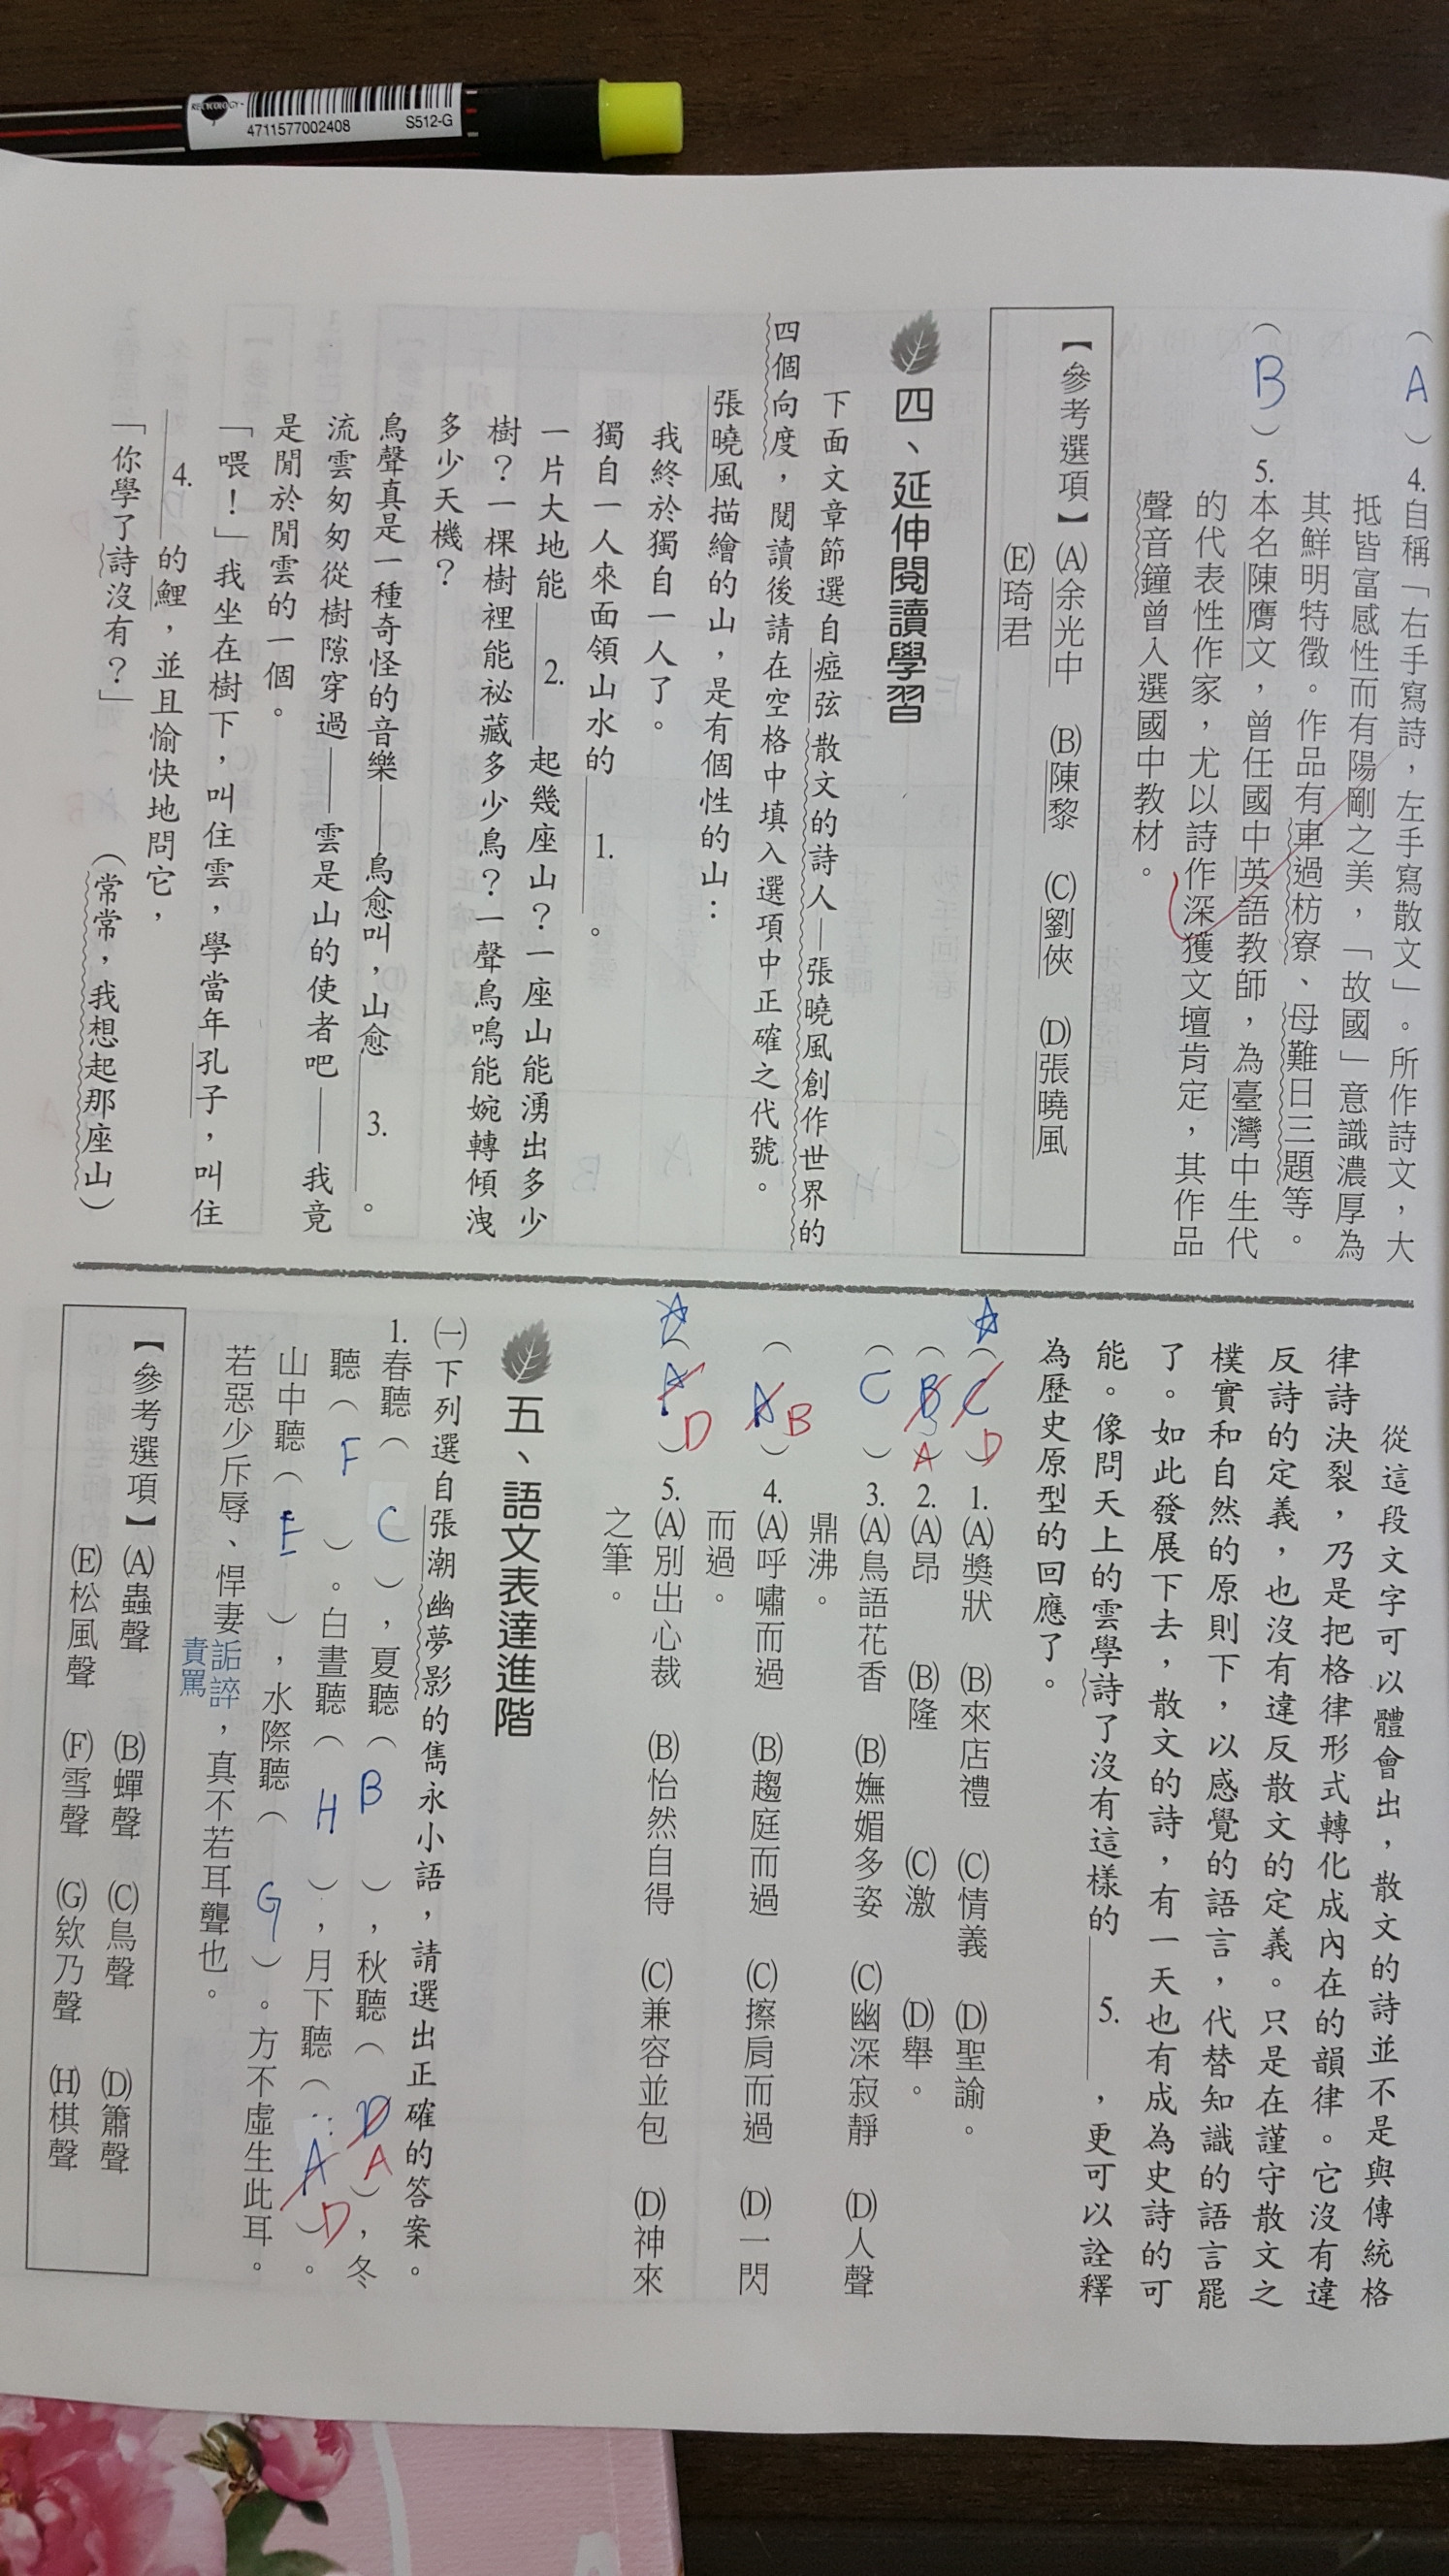 RECYCOLOGY
4711577002408
S512-G
( A ) 4.自稱「右手寫詩,左手寫散文」。所作詩文,大
抵皆富感性而有陽剛之美,「故國」意識濃厚為
其鮮明特徵。作品有車過枋寮、母難日三題等。
( B ) 5.本名陳膺文,曾任國中英語教師,為臺灣中生代
的代表性作家,尤以詩作深獲文壇肯定,其作品
聲音鐘曾入選國中教材。
【參考選項】(A)余光中 (B)陳黎 (C)劉俠 (D)張曉風
(E)琦君
四、延伸閱讀學習
下面文章節選自瘂弦散文的詩人—張曉風創作世界的
四個向度,閱讀後請在空格中填入選項中正確之代號。
張曉風描繪的山,是有個性的山:
我終於獨自一人了。
獨自一人來面領山水的 1. 。
一片大地能 2. 起幾座山?一座山能湧出多少
樹?一棵樹裡能祕藏多少鳥?一聲鳥鳴能婉轉傾洩
多少天機?
鳥聲真是一種奇怪的音樂——鳥愈叫,山愈 3. 。
流雲匆匆從樹隙穿過——雲是山的使者吧——我竟
是閒於閒雲的一個。
「喂!」我坐在樹下,叫住雲,學當年孔子,叫住
4. 的鯉,並且愉快地問它,
「你學了詩沒有?」 (常常,我想起那座山)
從這段文字可以體會出,散文的詩並不是與傳統格
律詩決裂,乃是把格律形式轉化成內在的韻律。它沒有違
反詩的定義,也沒有違反散文的定義。只是在謹守散文之
樸實和自然的原則下,以感覺的語言,代替知識的語言罷
了。如此發展下去,散文的詩,有一天也有成為史詩的可
能。像問天上的雲學詩了沒有這樣的 5. ,更可以詮釋
為歷史原型的回應了。
☆( C D ) 1.(A)獎狀 (B)來店禮 (C)情義 (D)聖諭。
( B A ) 2.(A)昂 (B)隆 (C)激 (D)舉。
( C ) 3.(A)鳥語花香 (B)嫵媚多姿 (C)幽深寂靜 (D)人聲
鼎沸。
( A B ) 4.(A)呼嘯而過 (B)趨庭而過 (C)擦肩而過 (D)一閃
而過。
☆( A D ) 5.(A)別出心裁 (B)怡然自得 (C)兼容並包 (D)神來
之筆。
五、語文表達進階
㈠下列選自張潮幽夢影的雋永小語,請選出正確的答案。
1.春聽( C ),夏聽( B ),秋聽( D A ),冬
聽( F )。白晝聽( H ),月下聽( A D )。
山中聽( E ),水際聽( G )。方不虛生此耳。
若惡少斥辱、悍妻詬誶,真不若耳聾也。
責罵
【參考選項】(A)蟲聲 (B)蟬聲 (C)鳥聲 (D)簫聲
(E)松風聲 (F)雪聲 (G)欸乃聲 (H)棋聲